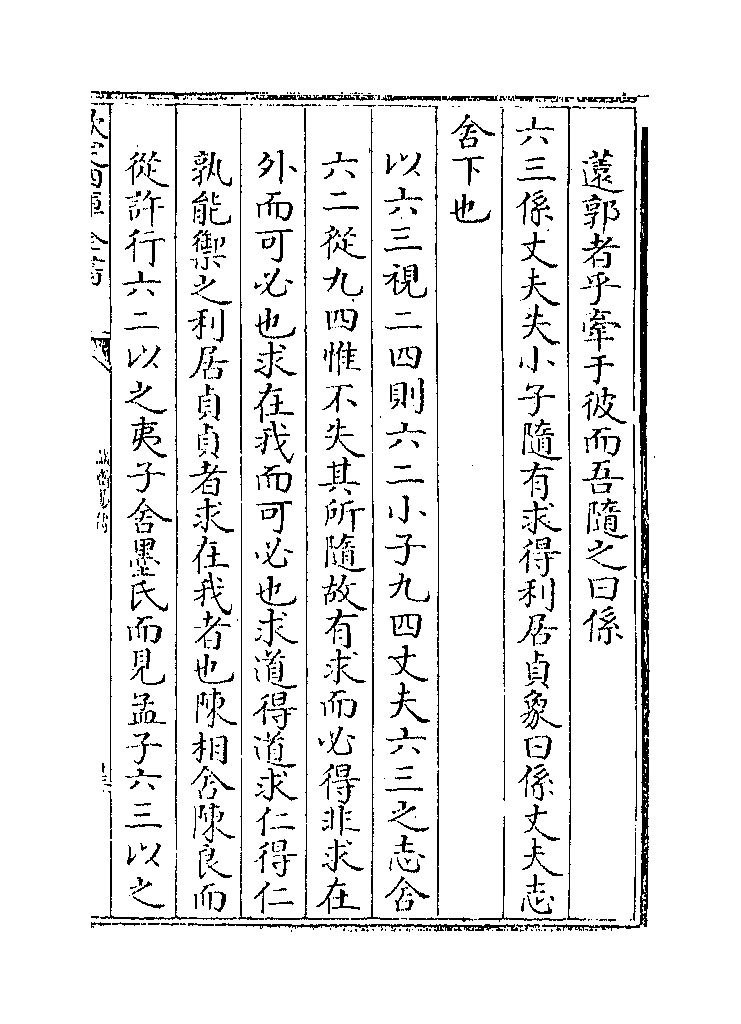 薳郭者乎牽于彼而吾隨之曰係
六三係丈夫失小子隨有求得利居貞象曰係丈夫志
舍下也
以六三視二四則六二小子九四丈夫六三之志舍
六二從九四惟不失其所隨故有求而必得非求在
外而可必也求在我而可必也求道得道求仁得仁
孰能禦之利居貞貞者求在我者也陳相舍陳良而
從許行六二以之夷子舍墨氏而見孟子六三以之
欽定四庫全書
誠齋易傳